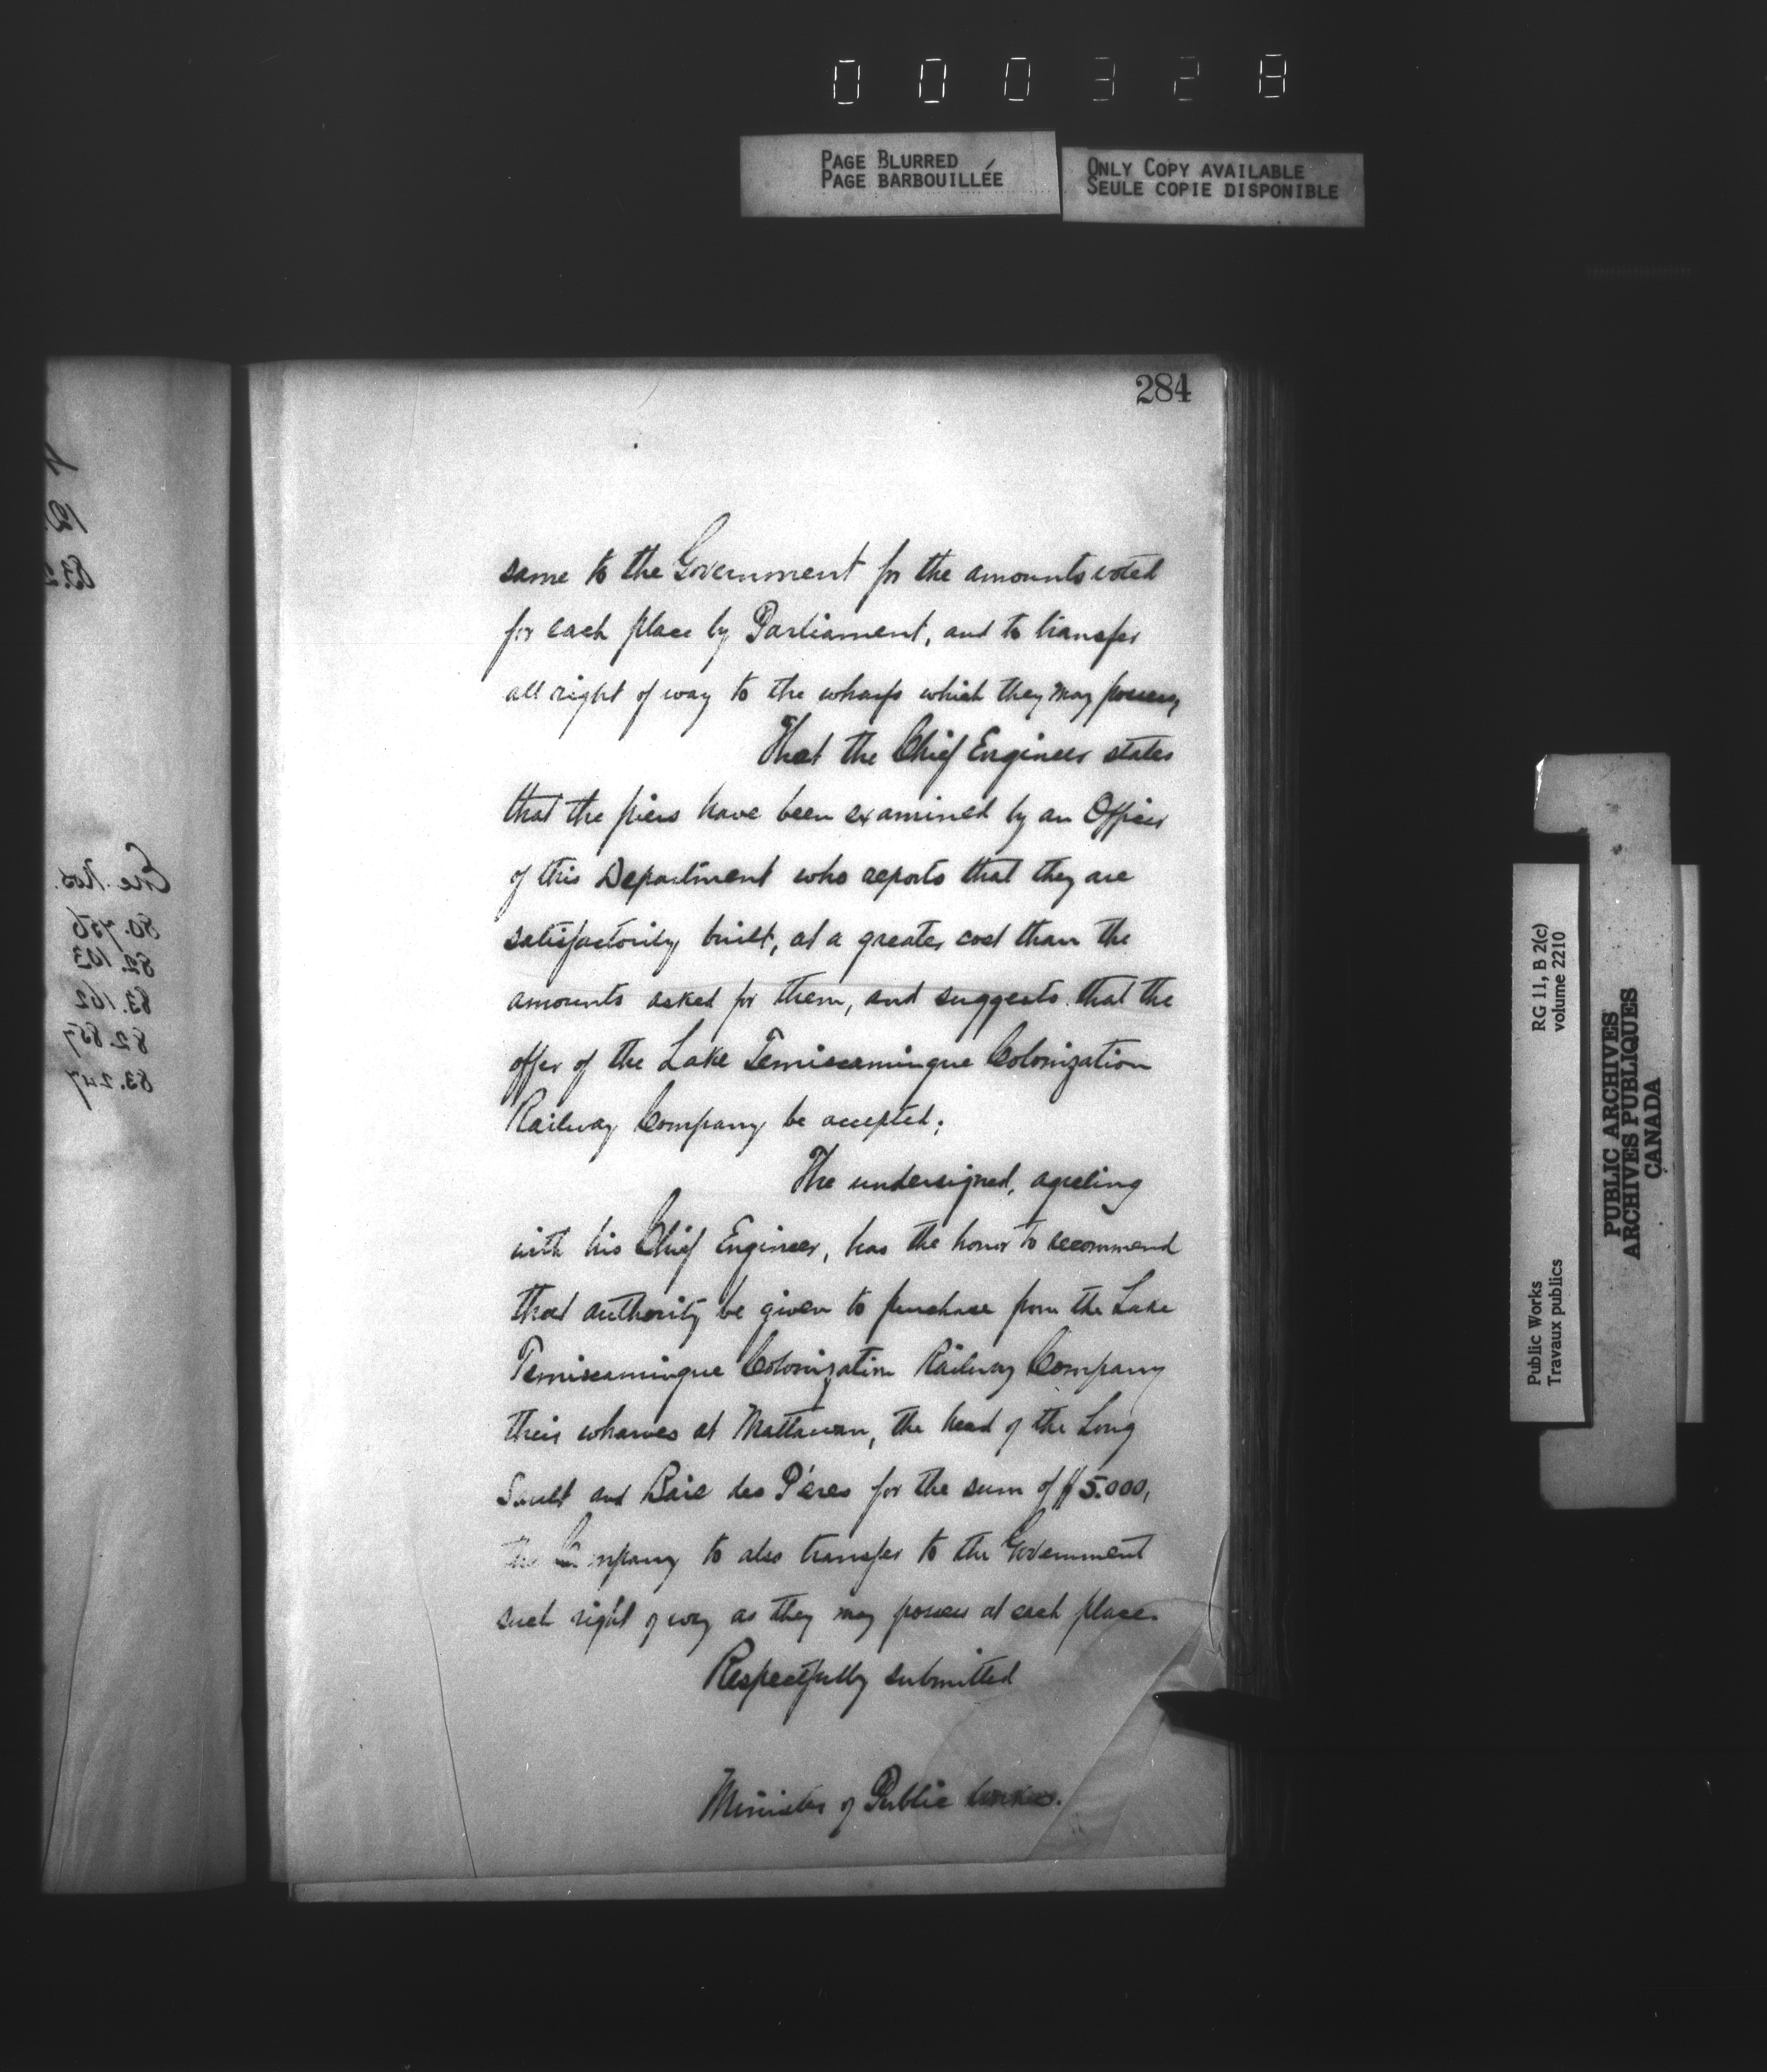 000328
PAGE BLURRED
PAGE BARBOUILLÉE
ONLY COPY AVAILABLE
SEULE COPIE DISPONIBLE
284
same to the Government for the amounts voted
for each place by Parliament, and to transfer
all right of way to the wharfs which they may possess,
That the Chief Engineer states
that the piers have been examined by an Officer
of this Department who reports that they are
satisfactorily built, at a greater cost than the
amounts asked for them, and suggests that the
offer of the Lake Temiscamingue Colonization
Railway Company be accepted;
The undersigned, agreeing
with his Chief Engineer, has the honor to recommend
that authority be given to purchase from the Lake
Temiscamingue Colonization Railway Company
their wharves at Mattawan, the head of the Long
Sault and Baie des Pères for the sum of $5.000,
the Company to also transfer to the Government
such right of way as they may possess at each place.
Respectfully submitted
Minister of Public Works.
Enc. Nos.
80.756
82.103
83.162
82.857
83.247
RG 11, B 2(c)
volume 2210
Public Works
Travaux publics
PUBLIC ARCHIVES
ARCHIVES PUBLIQUES
CANADA